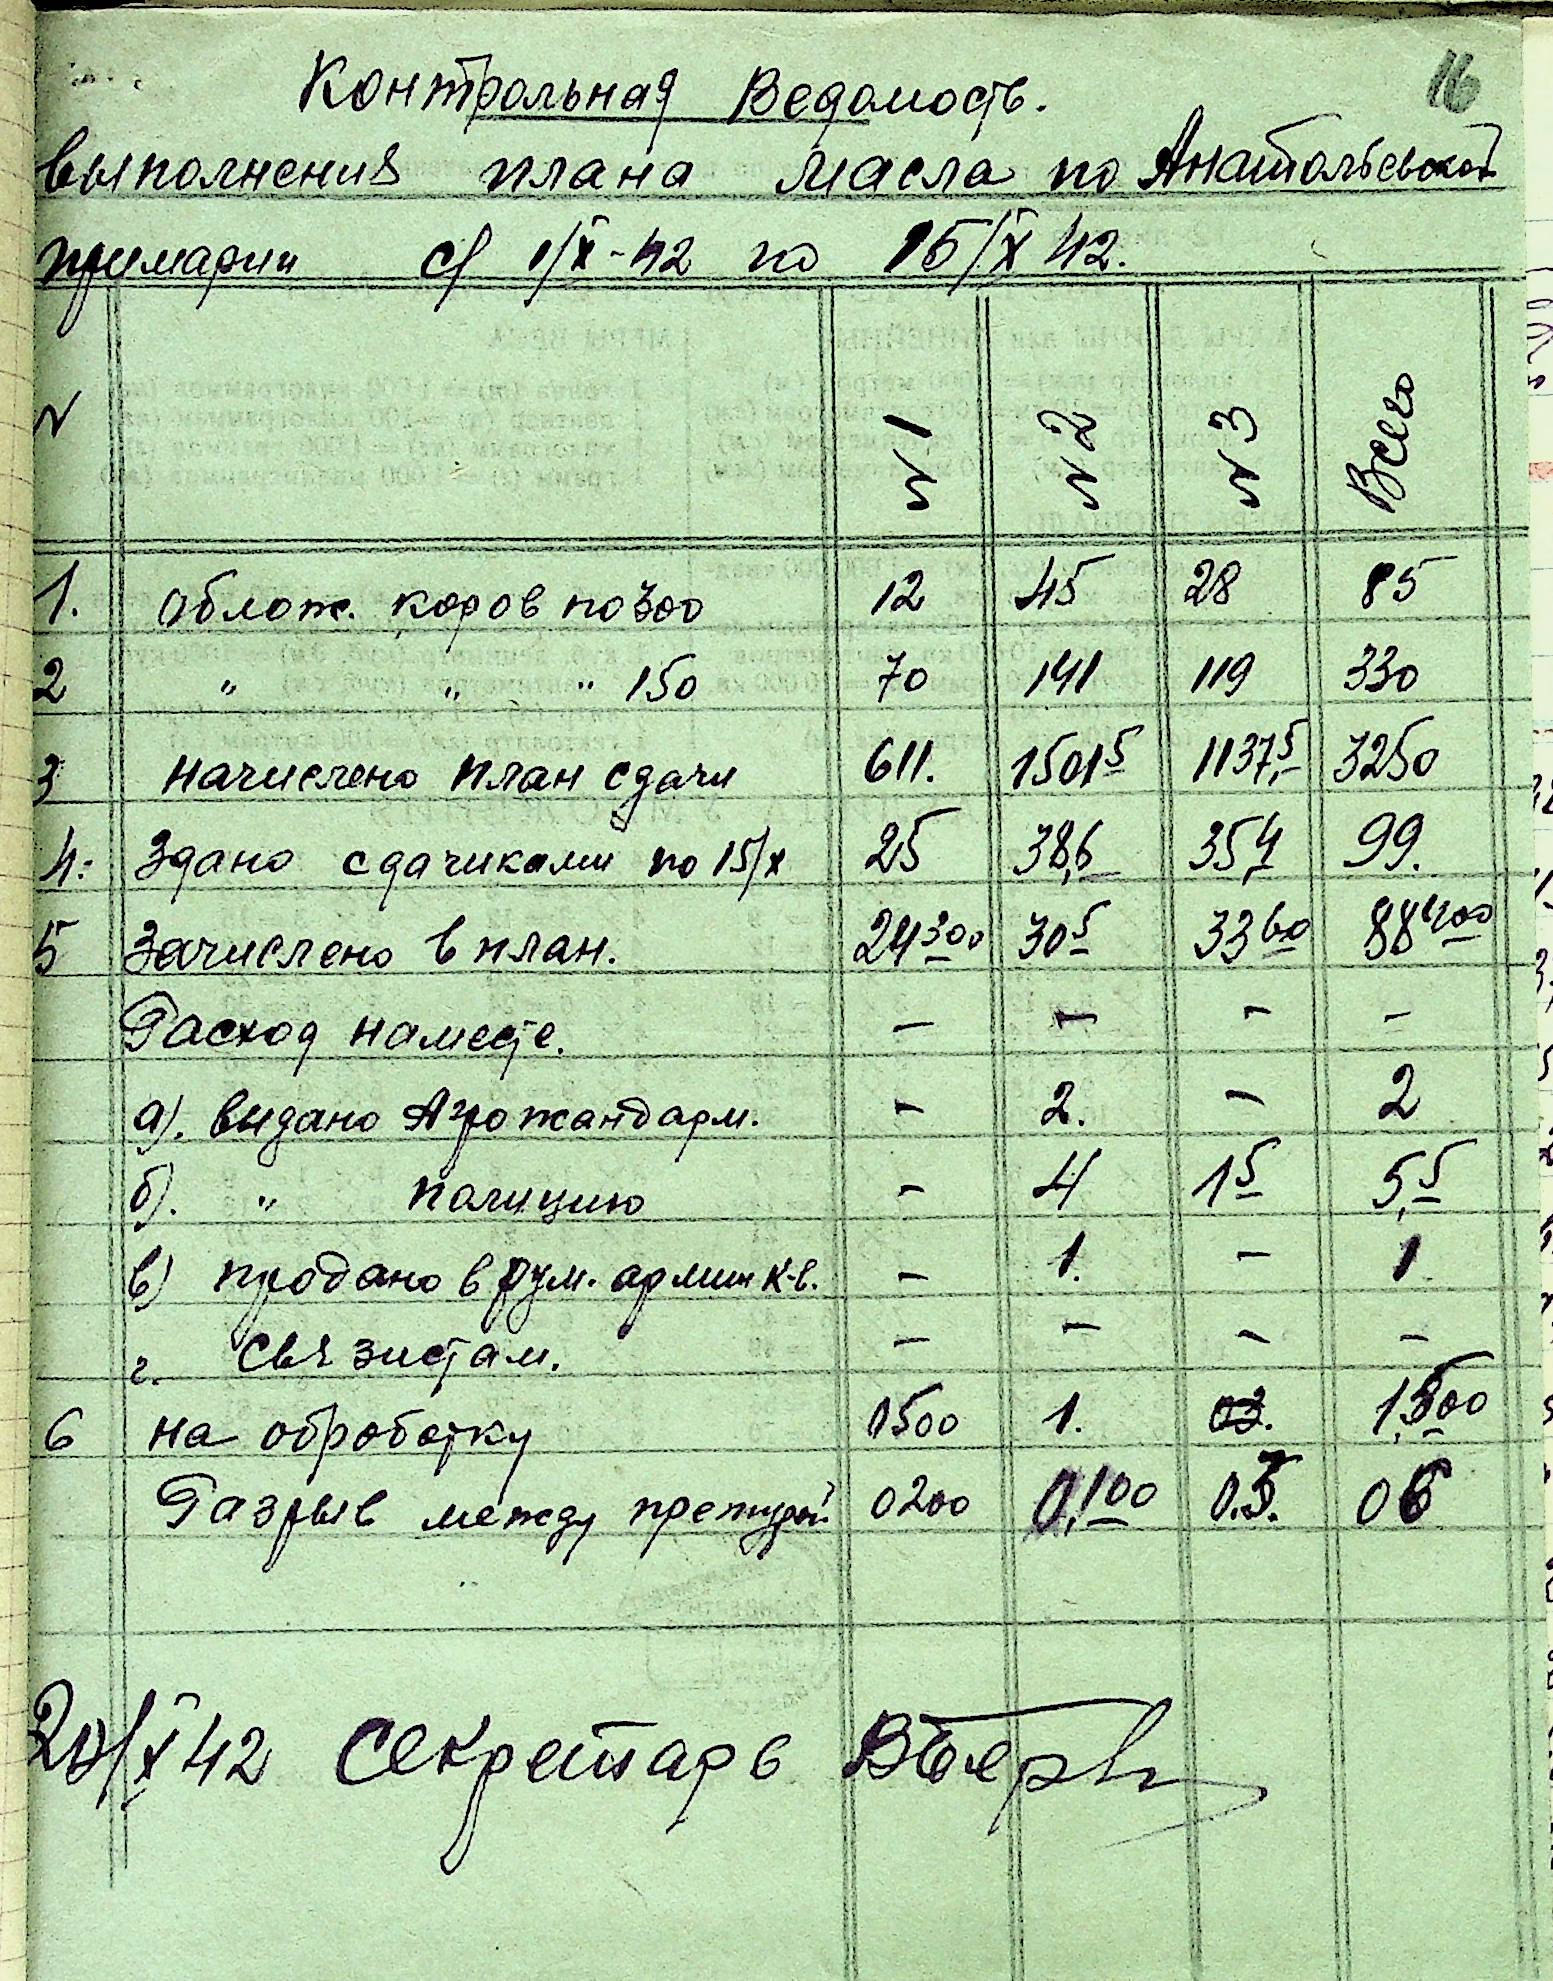 16
Контрольная Ведомость.
выполнения плана масла по Анатольевской
примарии с/ 1/X-42 по 15/X 42.
N N1 N2 N3 Всего
1. облож. коров по 300 12 45 28 85
2 " " " 150 70 141 119 330
3 начислено план сдачи 611. 1501⁵ 1137,⁵ 3250
4: Здано сдачиками по 15/X 25 38,6 35,4 99.
5 Зачислено в план. 24300 30⁵ 3360 88400
Расход наместе. – – – –
а). выдано Агрожандарм. – 2. – 2
б). " полицию – 4 1⁵ 5,⁵
в) продано в рум. армии к-в. – 1. – 1
г. свчзистам. – – – –
6 на обработку 0500 1. 03. 1,500
Разрыв между претурой 0200 0,100 0.3. 06
20/X 42 Секретарь